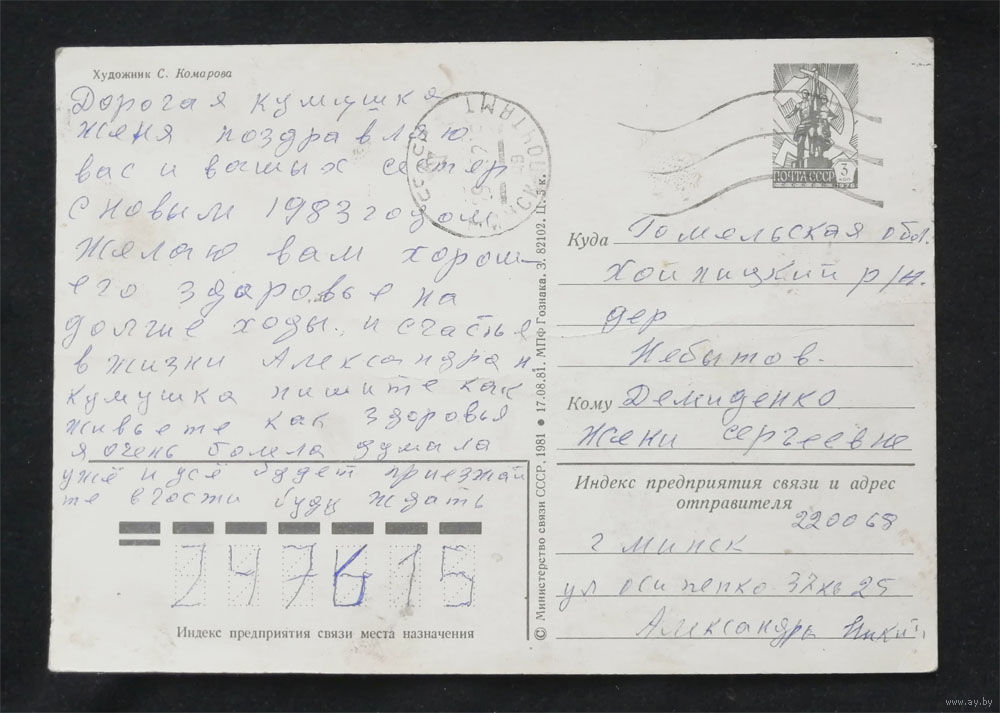 Художник С. Комарова
Дорогая кумушка
женя поздравляю
вас и вашых сестер
с новым 1983 годом
желаю вам хорош-
его здоровье на
долгие ходы. и счастье
в жизни Александра н
кумушка пишите как
живьете как здоровья
я очень болела думала
ужё и усё будет приезжай
те вгости буду ждать
247615
Индекс предприятия связи места назначения
© Министерство связи СССР. 1981 • 17.08.81. МПФ Гознака. З. 82102. Ц. 5 к.
ПОЧТАМТ
ПОЧТА СССР 3 коп
1976
Куда Гомельская обл.
Хойницкий р/н.
дер
Небытов.
Кому Демиденко
Жени сергеевне
Индекс предприятия связи и адрес
отправителя
220068
г минск
ул осипенко 37 кв 25
Александра
www.ay.by